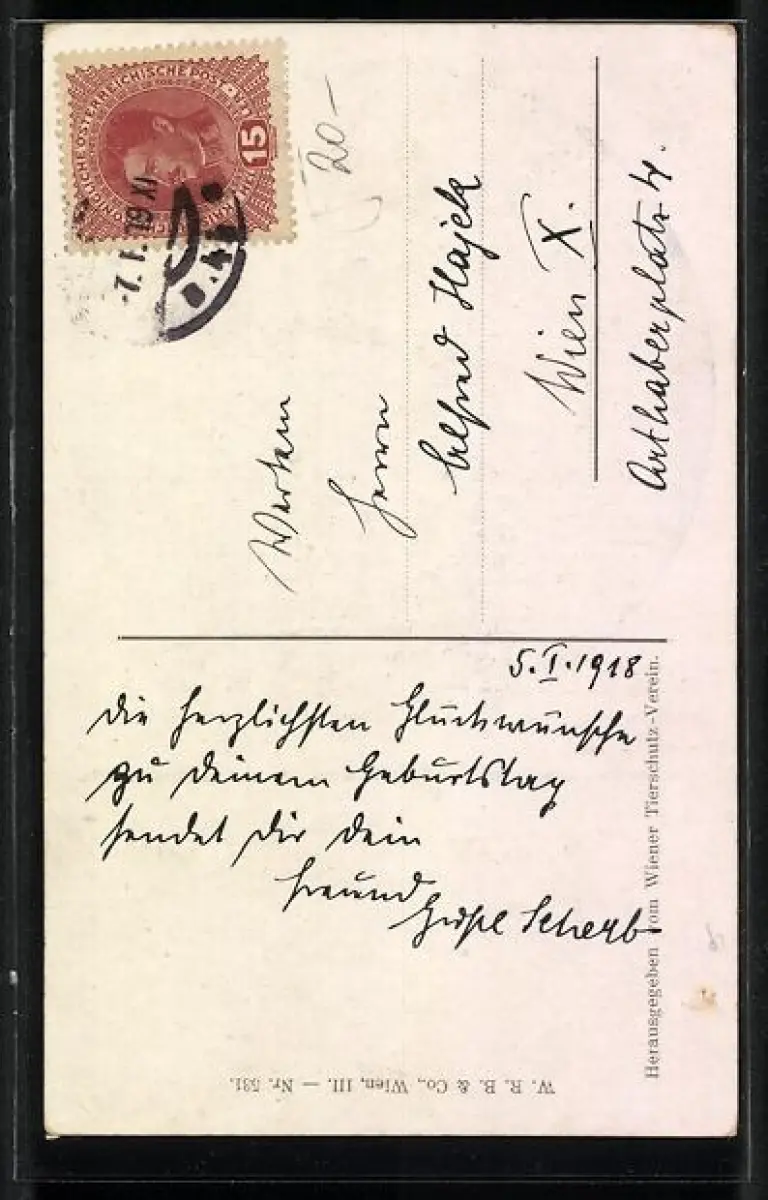 KAISERLICHE KÖNIGLICHE ÖSTERREICHISCHE POST
15
-7.I.19 XI
20-
Werten
Herrn
Alfred Hajek
Wien X.
Arthaberplatz 4.
5.I.1918
Die herzlichsten Glückwünsche
zu Deinem Geburtstag
sendet Dir Dein
Freund
Scherb
Herausgegeben vom Wiener Tierschutz-Verein.
W. R. B. & Co., Wien, III. — Nr. 531.